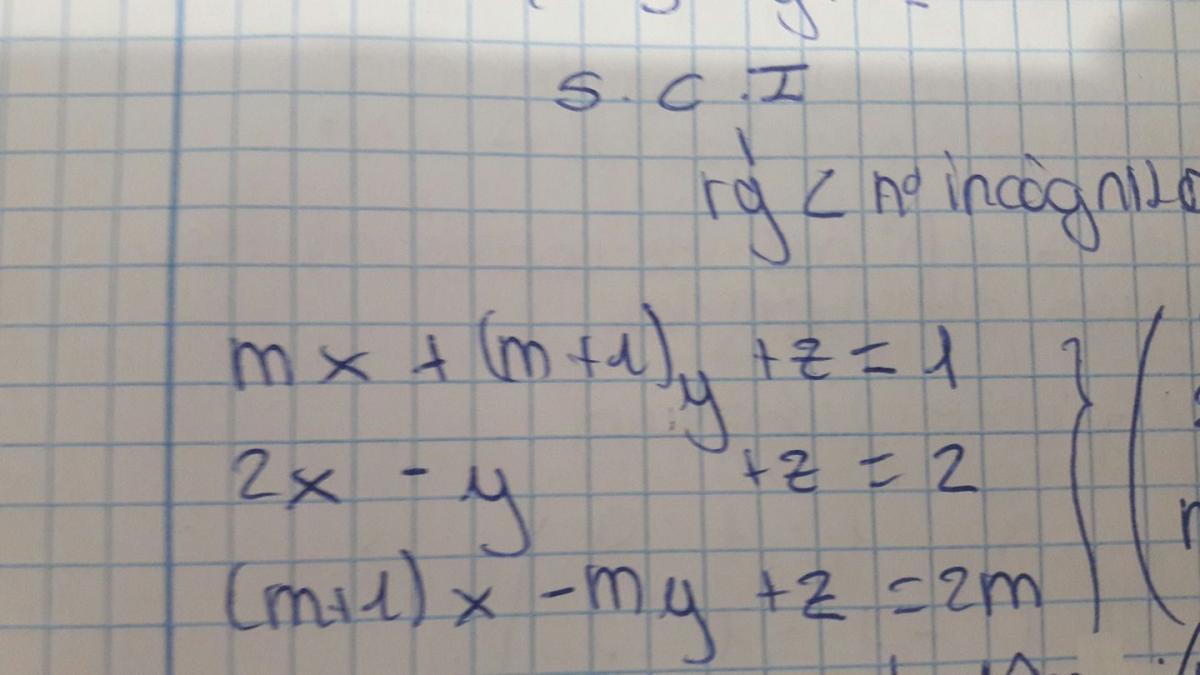 S.C.I
rg < nº incógnit
mx + (m+1)y + z = 1
2x - y + z = 2
(m+1)x - my + z = 2m